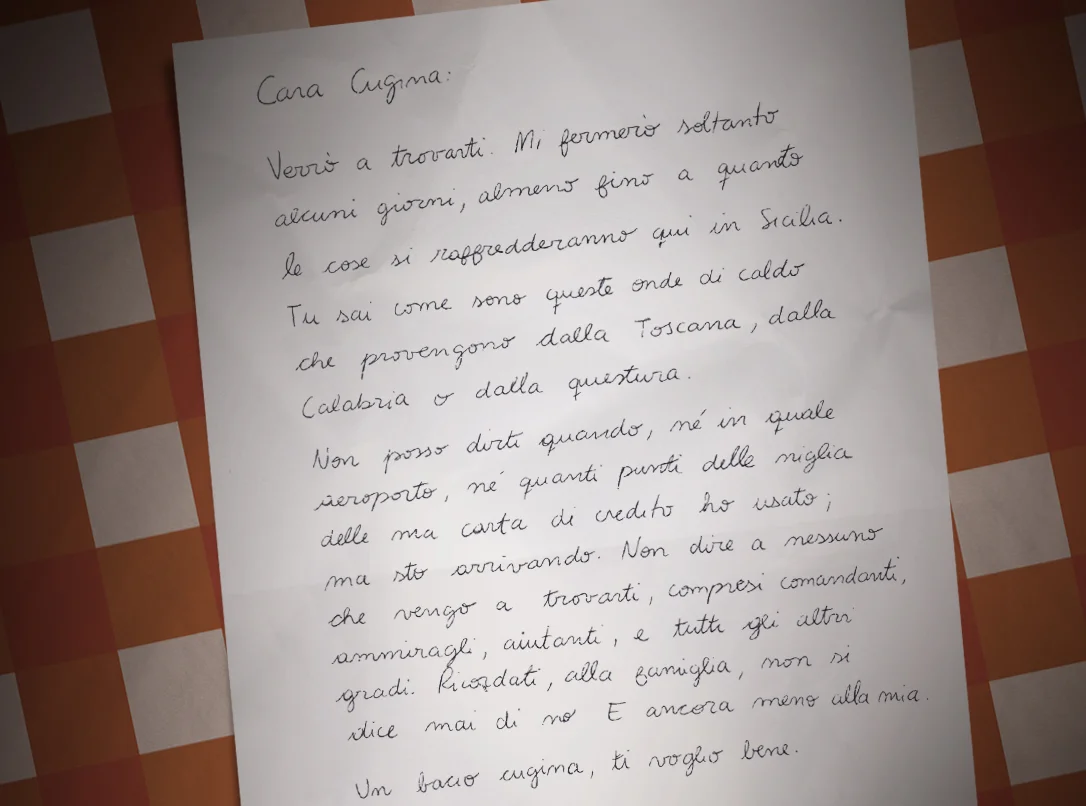 Cara Cugina:
Verrò a trovarti. Mi fermerò soltanto
alcuni giorni, almeno fino a quanto
le cose si raffredderanno qui in Sicilia.
Tu sai come sono queste onde di caldo
che provengono dalla Toscana, dalla
Calabria o dalla questura.
Non posso dirti quando, né in quale
aeroporto, né quanti punti delle miglia
delle ma carta di credito ho usato;
ma sto arrivando. Non dire a nessuno
che vengo a trovarti, compresi comandanti,
ammiragli, aiutanti, e tutti gli altri
gradi. Ricordati, alla famiglia, non si
dice mai di no E ancora meno alla mia.
Un bacio cugina, ti voglio bene.